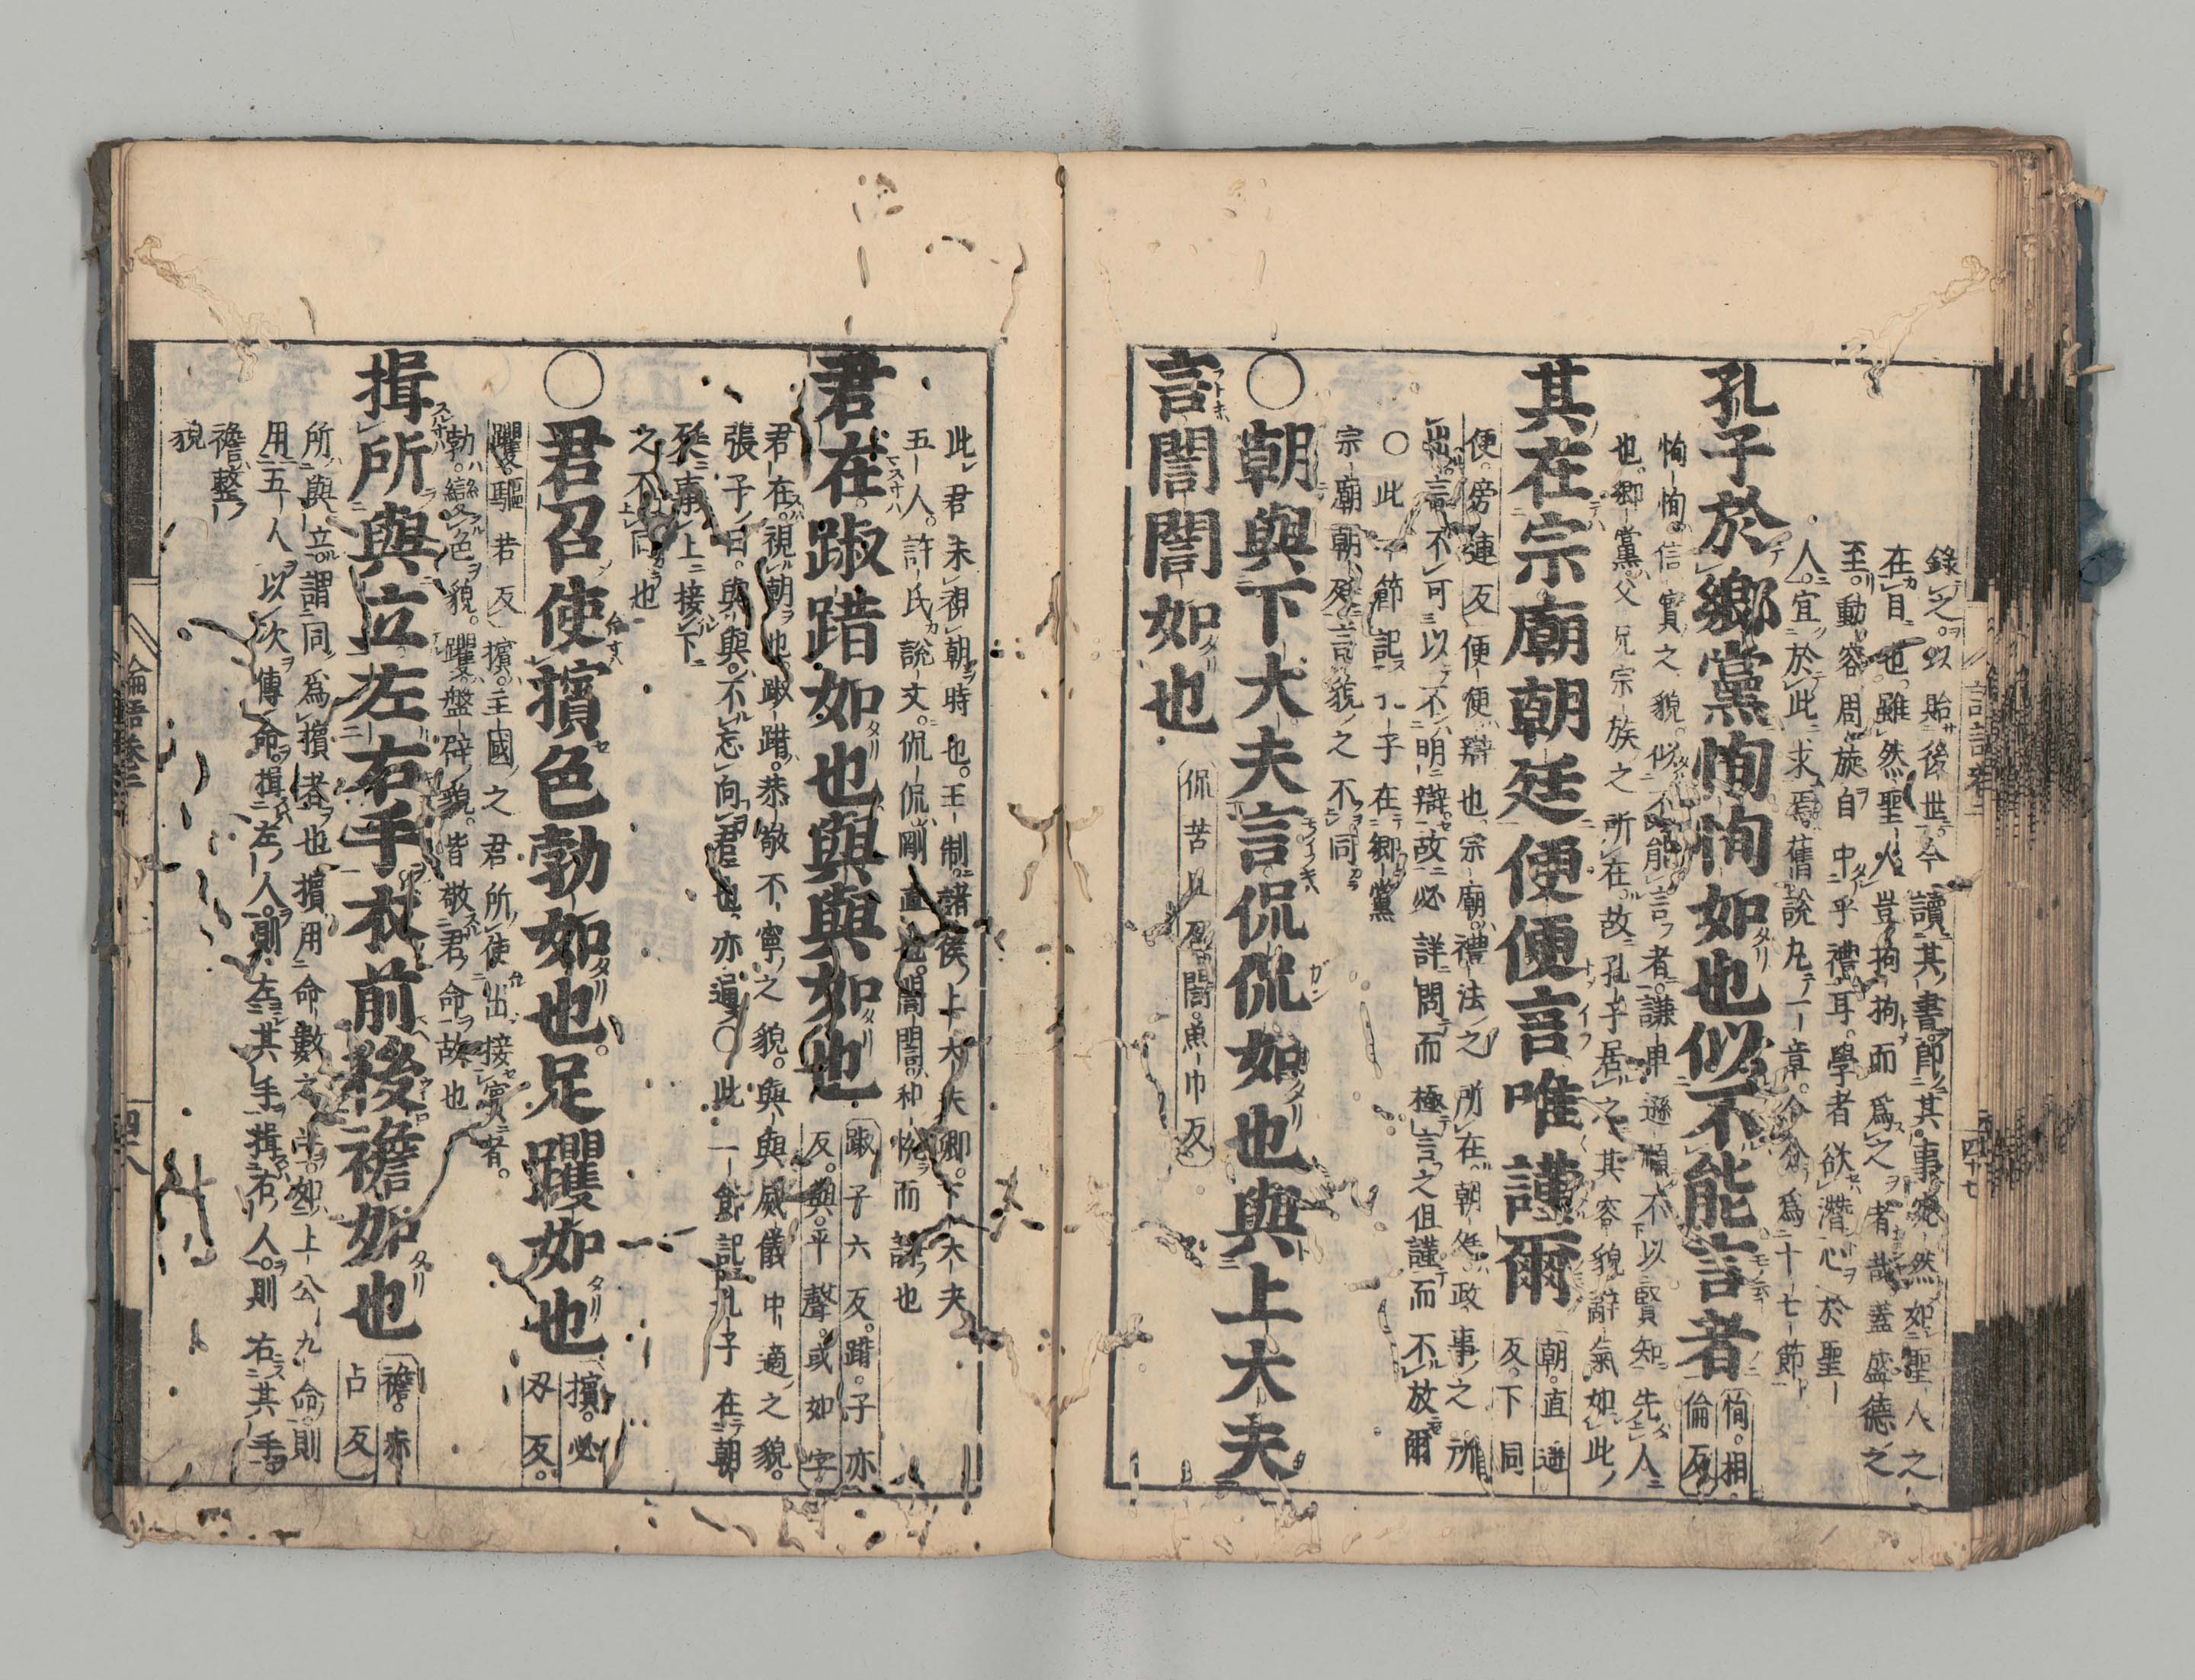 錄之以貽後世今讀其書節其事宛然如聖人之
在目也雖然聖人豈拘拘而爲之者哉蓋盛德之
至動容周旋自中乎禮耳學者欲潛心於聖
人宜於此求焉舊說凡一章今分爲十七節
孔子於鄉黨恂恂如也似不能言者
恂相
倫反
恂恂信實之貌似不能言者謙卑遜順不以賢知先人
也鄉黨父兄宗族之所在故孔子居之其容貌辭氣如此
其在宗廟朝廷便便言唯謹爾
朝直遥
反下同
便旁連反便便辯也宗廟禮法之所在朝廷政事之所
出言不可以不明辯故必詳問而極言之但謹而不放爾
○此一節記孔子在鄉黨
宗廟朝廷言貌之不同
○朝與下大夫言侃侃如也與上大夫
言誾誾如也
侃苦且反誾魚巾反
此君未視朝時也王制諸侯上大夫卿下大夫
五人許氏說文侃侃剛直也誾誾和悅而諍也
君在踧踖如也與與如也
踧子六反踖子亦
反與平聲或如字
君在視朝也踧踖恭敬不寧之貌與與威儀中適之貌
張子曰與與不忘向君也亦通○此一節記孔子在朝
廷事上接下
之不同也
○君召使擯色勃如也足躩如也
擯必
刃反
躩驅若反擯主國之君所使出接賓者
勃變色貌躩盤辟貌皆敬君命故也
揖所與立左右手衣前後襜如也
襜赤
占反
所與立謂同爲擯者也擯用命數之半如上公九命則
用五人以次傳命揖左人則左其手揖右人則右其手
襜整
貌
論語卷三
四十八
四十七